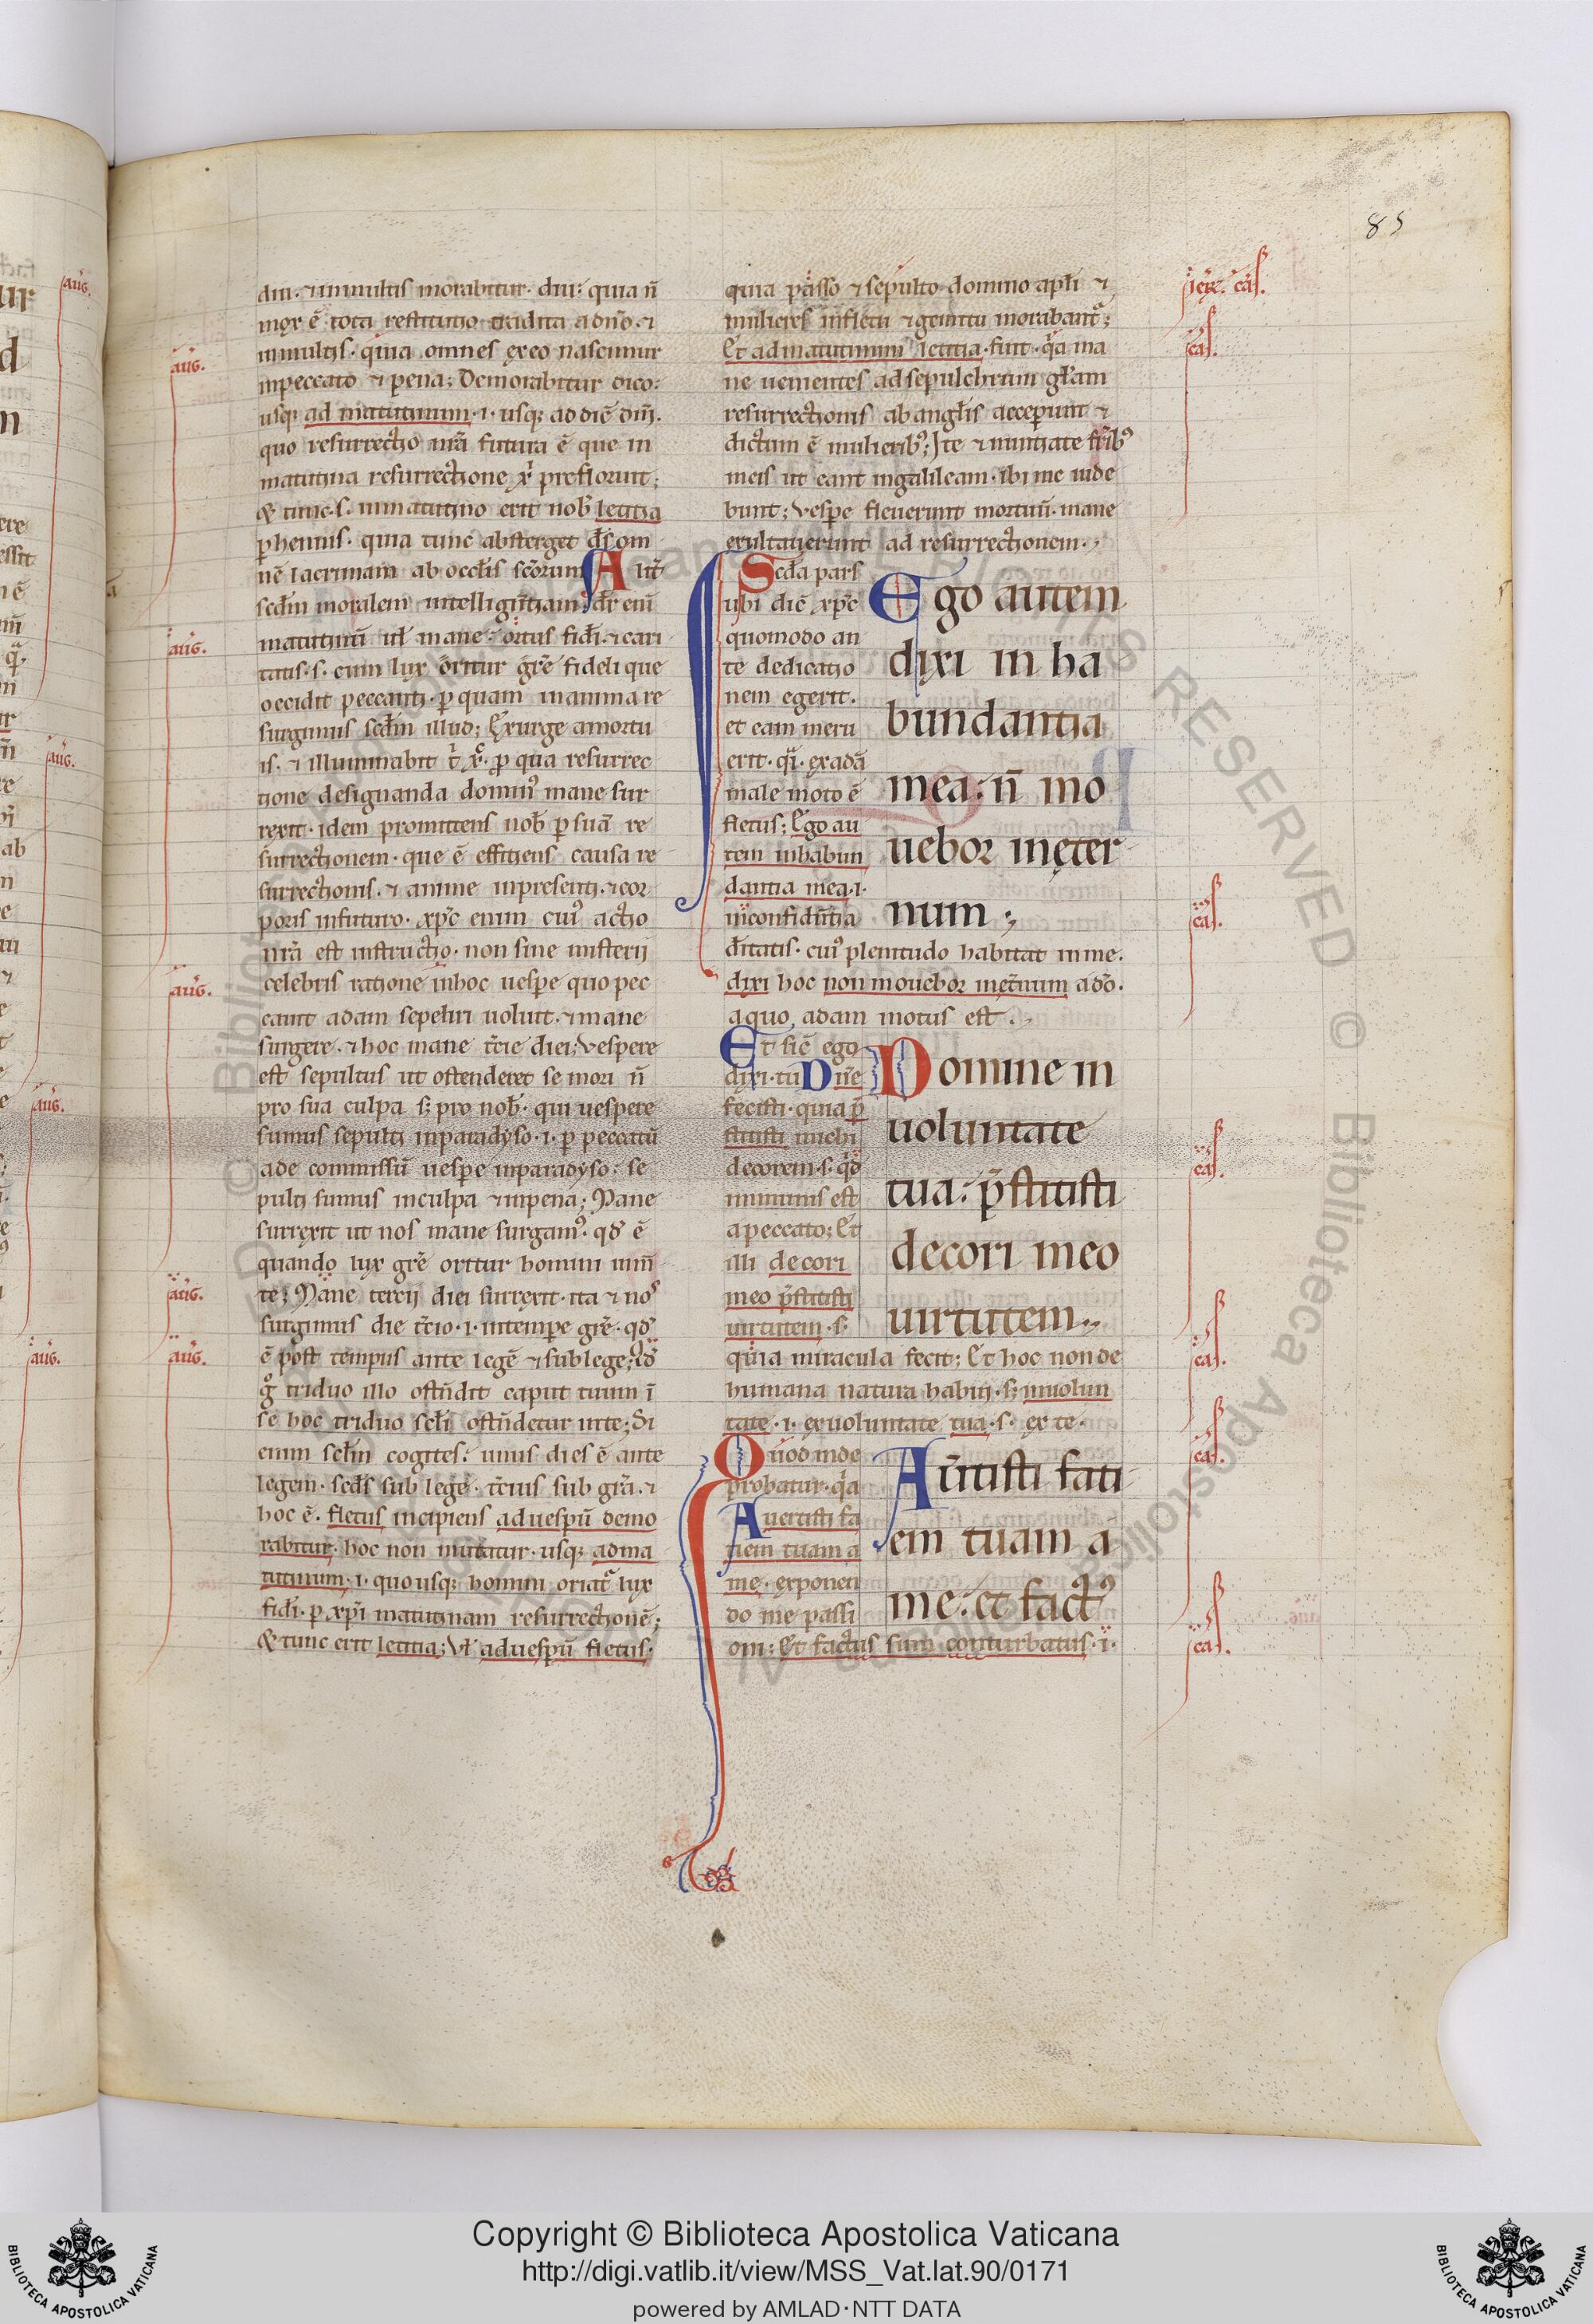 85
diu. ⁊ in multis morabitur. diu: quia ñ
mox ẽ tota restitutio tradita a dño. ⁊
in multis. quia omnes ex eo nascimur
in peccato ⁊ pena; Demorabitur dico:
usq; ad matutinum .i. usq; ad diẽ dm̃.
quo resurrectio nr̃a futura ẽ que in
matutina resurrectione xp̃i prefloruit;
⁊ tunc .s. in matutino erit nob̃ letitia
p̱hennis. quia tunc absterget d̃s om
nẽ lacrimam ab oclis sc̃orum. A ut̃
sc̃dm moralem intellig̃tiam. dr̃ eni
matutinũ ul̃ mane. ortus fidi. ⁊ cari
tatis .s. cum lux oritur gr̃e fideli que
occidit peccanti. p̱ quam in anima re
surgimus sc̃dm illud; Exurge a mortu
is. ⁊ illuminabit t̾ xp̃c. p̱ qua resurrec
tione designanda domin᷒ mane sur
rexit. idem promittens nob̃ p̱ suã re
surrectionem. que ẽ efficiens causa re
surrectionis. ⁊ anime in presenti. ⁊ cor
poris in futuro. xp̃c enim cui᷒ actio
nr̃a est instructio. non sine misterij
celebris ratione in hoc uesp̱e quo pec
cauit adam sepeliri uoluit. ⁊ mane
surgere. ⁊ hoc mane t̃cie diei; Vespere
est sepultus ut ostenderet se mori ñ
pro sua culpa s; pro nob̃. qui uespere
sumus sepulti in paradyso .i. p̱ peccatũ
ade commissũ uesp̱e in paradyso. se
pulti sumus in culpa ⁊ in pena; Mane
surrexit ut nos mane surgam᷒. qd̃ ẽ
quando lux gr̃e oritur homini in m̃
te; Mane tercij diei surrexit. ita ⁊ nos
surgimus die t̃cio .i. in temp̱e gr̃e. qd̃
ẽ post tempus ante legẽ ⁊ sub lege; Qd̃
g̊ triduo illo ostñdit caput tuum ĩ
se hoc triduo scl̃i ostñdetur in te; Si
enim scl̃m cogites. unus dies ẽ ante
legem. sed̃s sub lege. t̃cius sub gr̃a. ⁊
hoc ẽ. fletus incipiens ad uesp̱ũ demo
rabitur. hoc non mutatur. usq; ad ma
tutinum .i. quousq; homini oriat̾ lux
fidi. p̱ xp̃i matutinam resurrectionẽ;
⁊ tunc erit letitia; Vl̃ ad uesp̱ũ fletus.
aug.
aug.
aug.
aug.
aug.
quia passo ⁊ sepulto domino apl̃i ⁊
mulieres in fletu ⁊ gemitu morabant̾;
Et ad matutinum letitia. fuit. q̃a ma
ne uenientes ad sepulchrum gl̃am
resurrectionis ab angl̃is acceperunt ⁊
dictum ẽ mulierib᷒; Ite ⁊ nuntiate fr̃ib᷒
meis ut eant in galileam. ibi me uide
bunt; Vesp̱e fleuerunt mortuũ. mane
exultauerunt ad resurrectionem.
Sc̃da pars
ubi diẽ xp̃c
quomodo an
te dedicatio
nem egerit.
et eam meru
erit. q̾. ex adã
male moto ẽ
fletus; Ego au
tem in habun
dantia mea .i.
in confid̃tia
d̃itatis. cui᷒ plenitudo habitat in me.
dixi hoc non mouebor in et̃num a dõ.
a quo adam motus est.
Ego autem
dixi in ha
bundantia
mea: ñ mo
uebor in eter
num;
Et sic ego
dixi. tu Dñe
fecisti. quia p̃
stitisti michi
decorem .s. qd̃
inmunis est
a peccato; Et
illi decori
meo p̃stitisti
uirtutem .s.
quia miracula fecit; Et hoc non de
humana natura habui. s; in uolun
tate .i. ex uoluntate tua .s. ex te.
Domine in
uoluntate
tua: p̃stitisti
decori meo
uirtutem;
Quod inde
probatur. q̃a
Auertisti fa
ciem tuam a
me. exponen
do me passi
oni; Et factus sum conturbatus .i.
Au̾tisti fati
em tuam a
me: et fact᷒
cas.
cas.
cas.
cas.
cas.
cas.
Copyright © Biblioteca Apostolica Vaticana
http://digi.vatlib.it/view/MSS_Vat.lat.90/0171
powered by AMLAD·NTT DATA
BIBLIOTECA APOSTOLICA VATICANA
BIBLIOTECA APOSTOLICA VATICANA